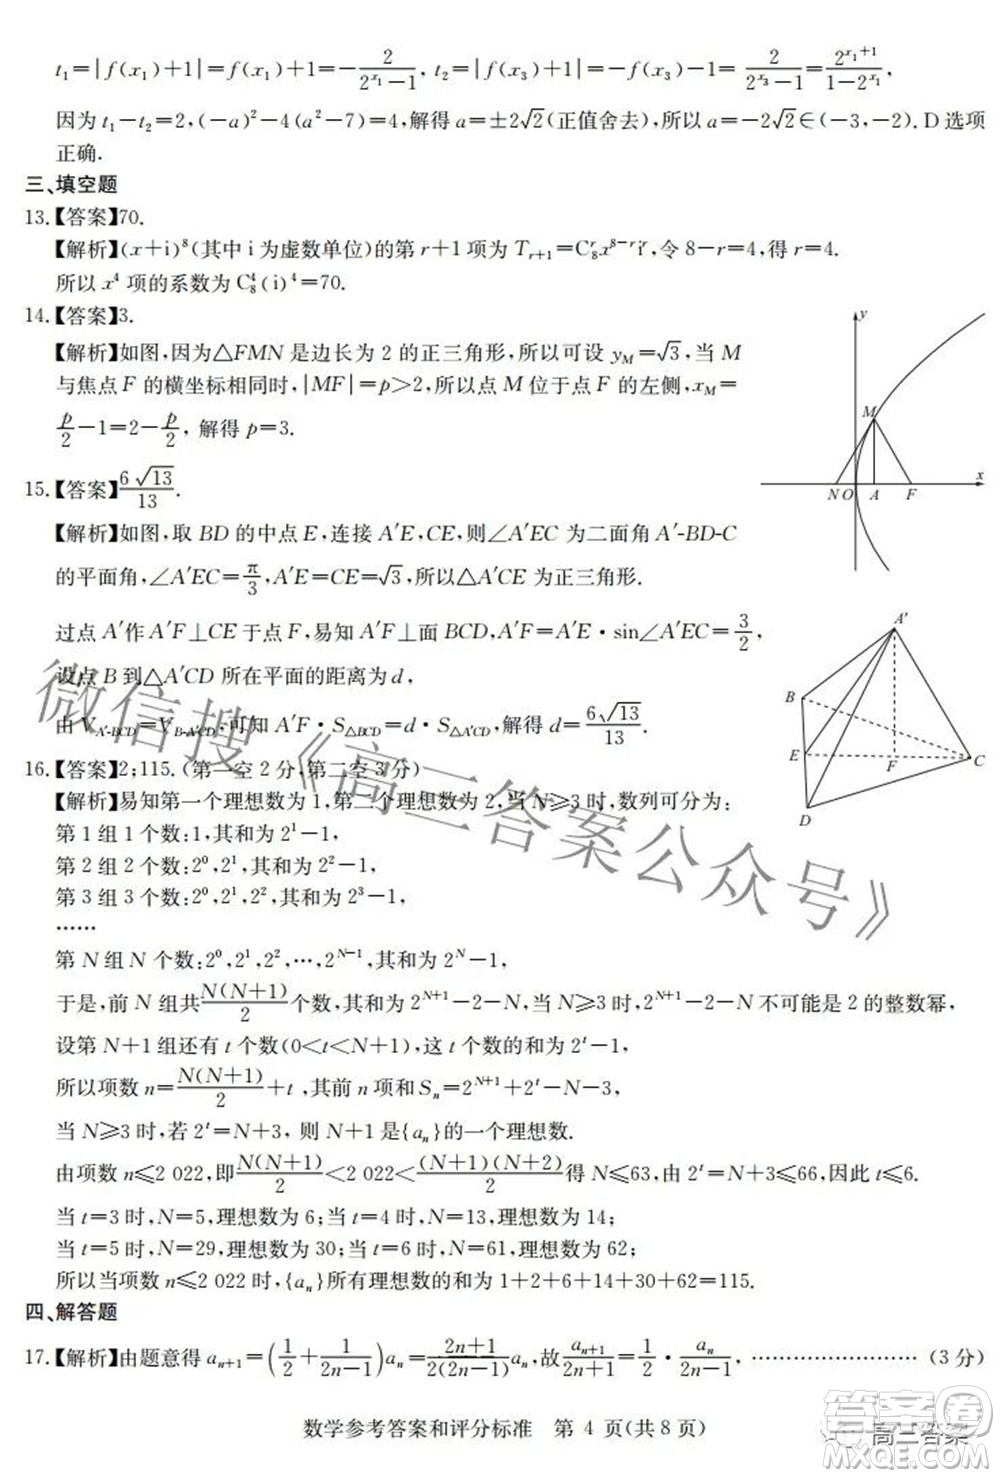 t₁=|f(x₁)+1|=f(x₁)+1=-2/(2^{x₁}-1), t₂=|f(x₃)+1|=-f(x₃)-1=2/(2^{x₃}-1)=2^{x₁+1}/(1-2^{x₁}),
因为 t₁-t₂=2,(-a)²-4(a²-7)=4,解得 a=±2√2(正值舍去),所以 a=-2√2∈(-3,-2). D 选项
正确.
三、填空题
13.【答案】70.
【解析】(x+i)⁸(其中 i 为虚数单位)的第 r+1 项为 T_{r+1}=C₈^r x^{8-r} i^r,令 8-r=4,得 r=4.
所以 x⁴ 项的系数为 C₈⁴(i)⁴=70.
14.【答案】3.
【解析】如图,因为△FMN 是边长为 2 的正三角形,所以可设 y_M=√3,当 M
与焦点 F 的横坐标相同时,|MF|=p>2,所以点 M 位于点 F 的左侧,x_M=
p/2-1=2-p/2, 解得 p=3.
y
M
N O A F x
15.【答案】6√13/13.
【解析】如图,取 BD 的中点 E,连接 A′E,CE,则∠A′EC 为二面角 A′-BD-C
的平面角,∠A′EC=π/3,A′E=CE=√3,所以△A′CE 为正三角形.
过点 A′作 A′F⊥CE 于点 F,易知 A′F⊥面 BCD,A′F=A′E·sin∠A′EC=3/2,
设点 B 到△A′CD 所在平面的距离为 d,
由 V_{A′-BCD}=V_{B-A′CD},可知 A′F·S_{△BCD}=d·S_{△A′CD},解得 d=6√13/13.
A′
B
E
F
C
D
16.【答案】2;115.(第一空 2 分,第二空 3 分)
【解析】易知第一个理想数为 1,第二个理想数为 2,当 N≥3 时,数列可分为:
第 1 组 1 个数:1,其和为 2¹-1,
第 2 组 2 个数:2⁰,2¹,其和为 2²-1,
第 3 组 3 个数:2⁰,2¹,2²,其和为 2³-1,
……
第 N 组 N 个数:2⁰,2¹,2²,…,2^{N-1},其和为 2^N-1,
于是,前 N 组共 N(N+1)/2 个数,其和为 2^{N+1}-2-N,当 N≥3 时,2^{N+1}-2-N 不可能是 2 的整数幂,
设第 N+1 组还有 t 个数(0<t<N+1),这 t 个数的和为 2^t-1,
所以项数 n=N(N+1)/2+t ,其前 n 项和 S_n=2^{N+1}+2^t-N-3,
当 N≥3 时,若 2^t=N+3, 则 N+1 是{a_n}的一个理想数.
由项数 n≤2 022,即 N(N+1)/2<2 022<(N+1)(N+2)/2 得 N≤63,由 2^t=N+3≤66,因此 t≤6.
当 t=3 时,N=5,理想数为 6;当 t=4 时,N=13,理想数为 14;
当 t=5 时,N=29,理想数为 30;当 t=6 时,N=61,理想数为 62;
所以当项数 n≤2 022 时,{a_n}所有理想数的和为 1+2+6+14+30+62=115.
四、解答题
17.【解析】由题意得 a_{n+1}=(1/2+1/(2n-1))a_n=(2n+1)/(2(2n-1))a_n,故 a_{n+1}/(2n+1)=1/2·a_n/(2n-1), ……………………(3 分)
数学参考答案和评分标准 第 4 页(共 8 页)
微信搜《高三答案公众号》
高三答案